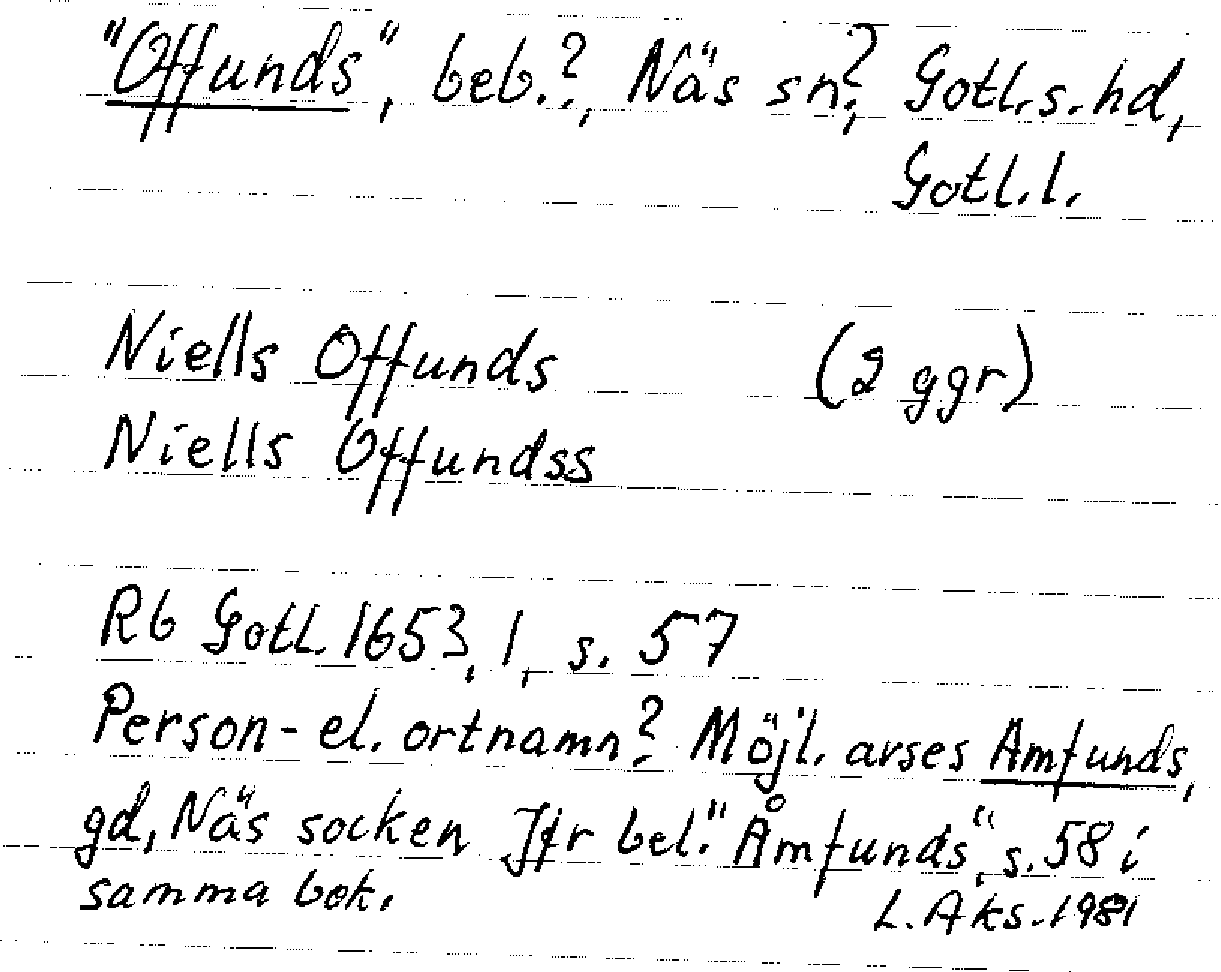 "Offunds", beb.?, Näs sn?, Gotl.s.hd,
Gotl.l.
Niells Offunds (2 ggr)
Niells Offundss
Rb Gotl. 1653, 1, s. 57
Person- el. ortnamn? Möjl. avses Amfunds,
gd, Näs socken Jfr bel. "Åmfunds", s. 58 i
samma bok.
L. Aks. 1981